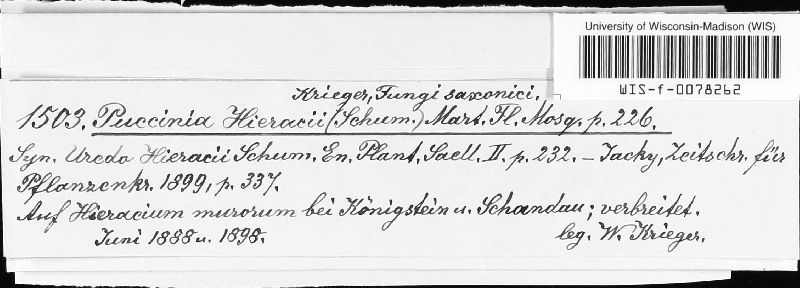 University of Wisconsin-Madison (WIS)
WIS-f-0078262
Krieger, Fungi saxonici.
1503. Puccinia Hieracii (Schum.) Mart. Fl. Mosq. p. 226.
Syn. Uredo Hieracii Schum. En. Plant. Saell. II. p. 232. – Jacky, Zeitschr. für
Pflanzenkr. 1899, p. 337.
Auf Hieracium murorum bei Königstein u. Schandau; verbreitet.
Juni 1888 u. 1898.
leg. W. Krieger.